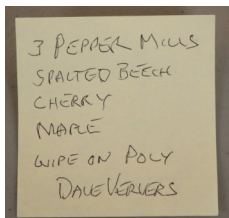 3 PEPPER MILLS
SPALTED BEECH
CHERRY
MAPLE
WIPE ON POLY
DALE VERVERS